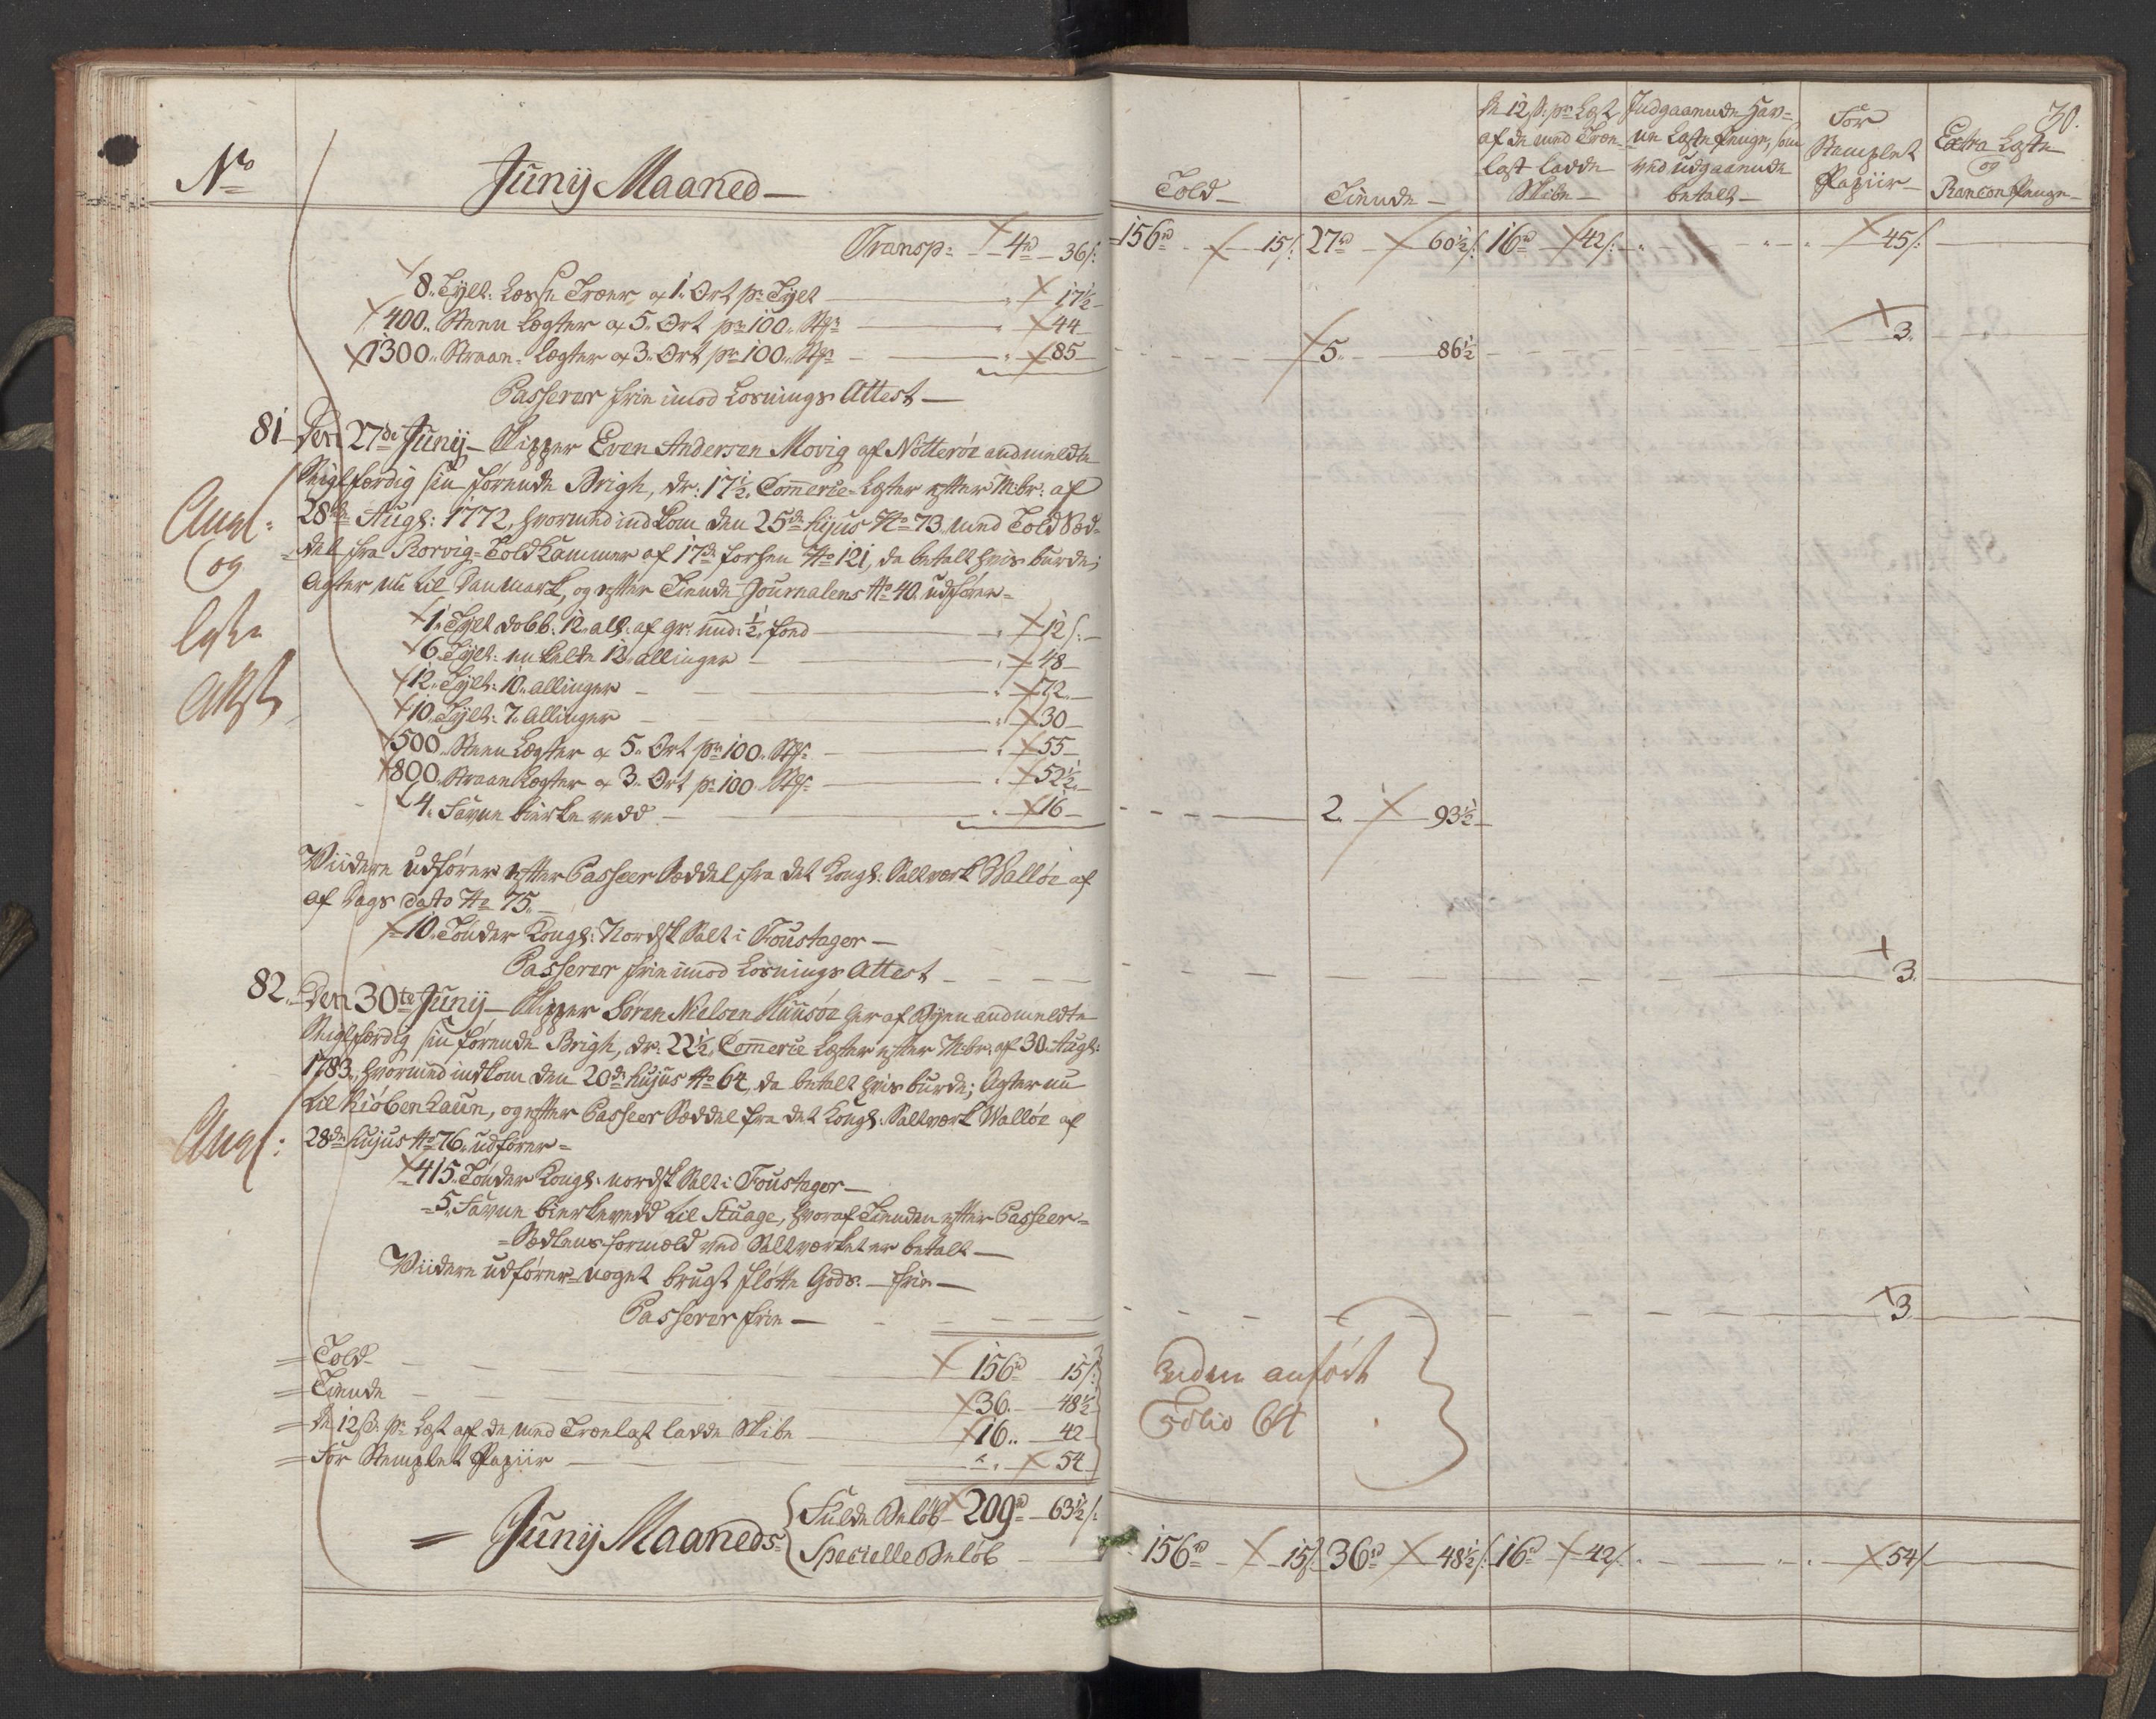 No
Junij Maaned
Transp: 4rd 36s:
8. Tylt: Losse Træer a 1. Ort pr Tylt 17½
400. Steen Lægter a 5. Ort pr 100. Stk: 44
1300. Straae Lægter a 3. Ort pr 100. Stk: 85
Passerer frie imod Losnings Attest
81 Den 27de Junij Skipper Even Andersen Movig af Nötterøe andmeldte
Seiglfærdig sin førende Brigh, dr: 17½ Commerce Læster efter M:br: af
28de Augs: 1772, hvormed indkom den 25de hujus No 73 med Told Sed-
del fra Rorvig Told Kammer af 17de forhen No 121, da betalt hvis burde;
Agter nu til Danmark, og efter Tiende Journalens No 40 udfører
Angl:
og
Læste
Attest
1. Tylt dobb: 12 all: af gr: und: ½ fod 12s:
6 Tylt: enkelte 12. allinger 48
12. Tylt: 10. allinger 72
10. Tylt: 7. Allinger 30
500 Steen Lægter a 5. Ort pr 100. Stk: 55
800. Straae Lægter a 3. Ort pr 100. Stk: 52½
4. Favne birke vedd 16
Viidere udfører efter Passeer Seddel fra det Kongl: Saltværk Walløe af
af Dags Dato No 75
10. Tönder Kongl: Nordsk Salt i Foustager
Passerer frie imod Losnings Attest
82. Den 30te Junij Skipper Søren Nielsen her af Byen andmeldte
Seiglfærdig sin førende Brigh, dr: 22½ Commerce Læster efter M:br: af 30. Augs:
1783, hvormed indkom den 20de hujus No 64, da betalt hvis burde; Agter nu
til Kiøbenhaun, og efter Passeer Seddel fra det Kongl: Saltværk Walløe af
28de hujus No 76 udfører
Angl:
415. Tönder Kongl: nordsk Salt i Foustager
5. Favne birkevedd til Stuage, hvoraf Tienden efter Passeer
Sedlens formæld ved Saltværket er betalt
Viidere udfører noget brugt fløtte Gods. frie
Passerer frie
Told 156rd 15s:
Tiende 36. 48½
De 12 s: pr Læst af de med Trælast ladde Skibe 16. 42
For Stemplet Papiir 54
Junij Maaneds
Fulde Beløb 209rd 63½s:
Specielle Beløb
30.
Told
Tiende
De 12 s: pr Læst
af de med Træ-
last ladde
Skibe
Indgaaende Hav-
ne Læste Penge, som
ved udgaaende
betalt
For
Stemplet
Papiir
Extra Læste
og
Rancon Penge
156rd 15s: 27rd 60½s: 16rd 42s: 45s:
3.
5. 86½
2. 93½
3.
3.
anført
Folio 64
156rd 15s: 36rd 48½s: 16rd 42s: 54s: